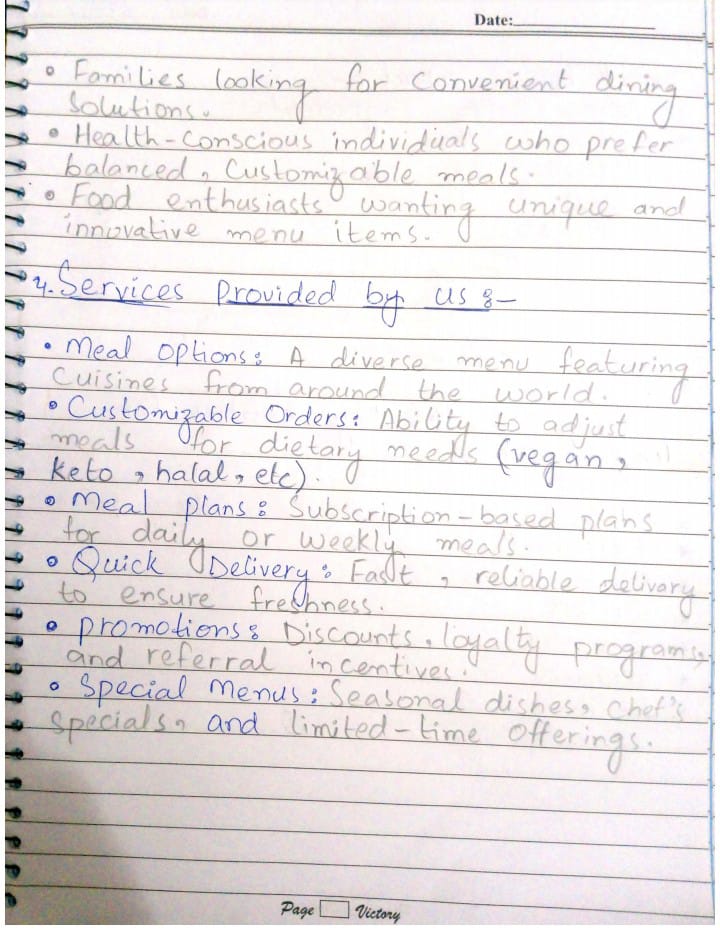 Date:
• Families looking for convenient dining
solutions.
• Health-conscious individuals who prefer
balanced, customizable meals.
• Food enthusiasts wanting unique and
innovative menu items.
4. Services Provided by us :-
• Meal options: A diverse menu featuring
Cuisines from around the world.
• Customizable Orders: Ability to adjust
meals for dietary needs (vegan,
keto, halal, etc).
• Meal plans: Subscription-based plans
for daily or weekly meals.
• Quick Delivery: Fast, reliable delivary
to ensure freshness.
• promotions: Discounts, loyalty programs,
and referral incentives.
• Special Menus: Seasonal dishes, chef's
specials, and limited-time offerings.
Page Victory